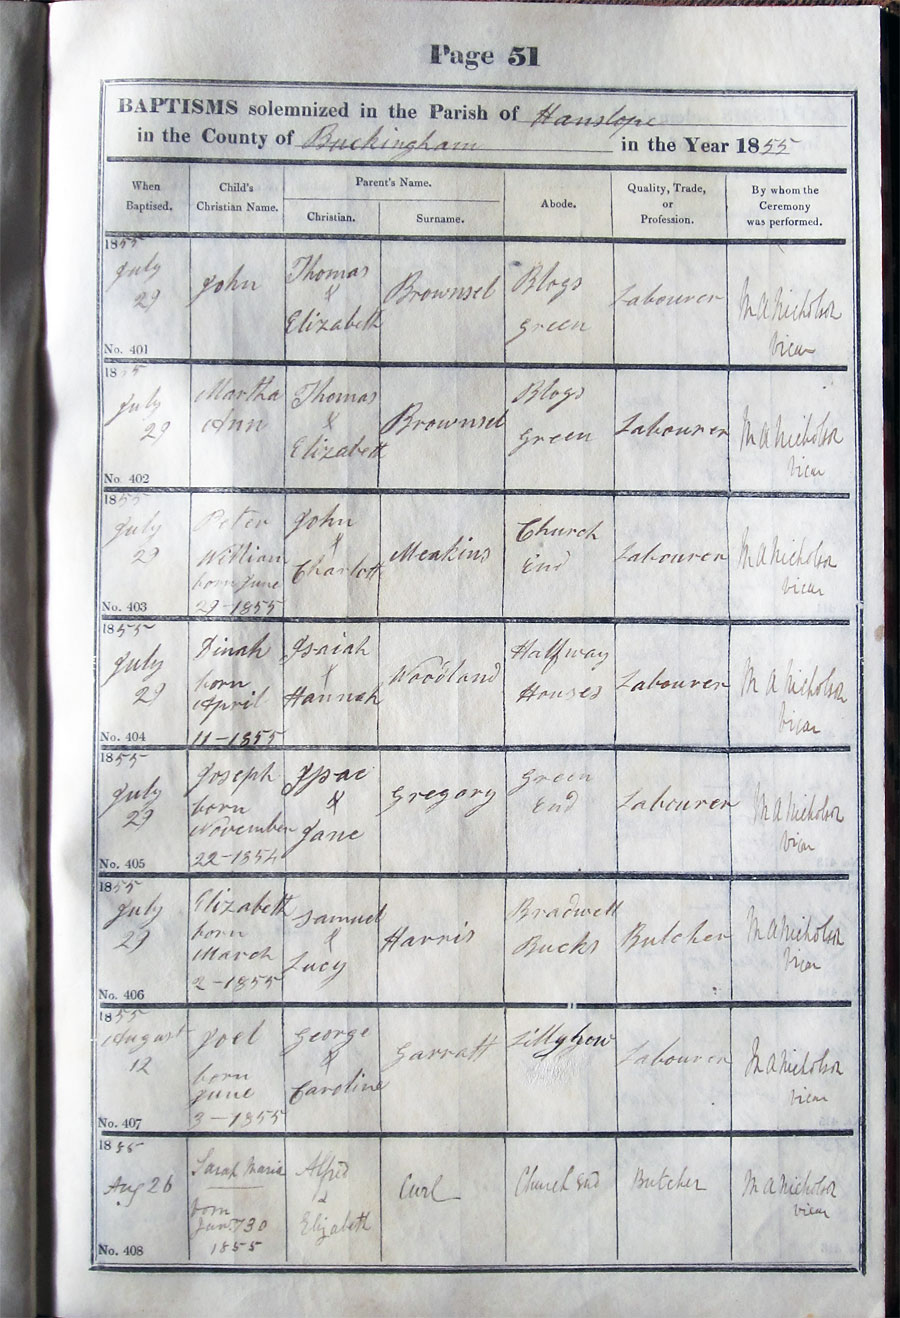 Page 51
BAPTISMS solemnized in the Parish of Hanslope
in the County of Buckingham in the Year 1855
When Baptised.
Child's Christian Name.
Parent's Name.
Christian.
Surname.
Abode.
Quality, Trade, or Profession.
By whom the Ceremony was performed.
1855
July
29
No. 401
John
Thomas
&
Elizabeth
Brownsel
Blogs
green
Labourer
M A Nicholson
Vicar
1855
July
29
No. 402
Martha
Ann
Thomas
&
Elizabeth
Brownsel
Blogs
green
Labourer
M A Nicholson
Vicar
1855
July
29
No. 403
Peter
William
born June
29-1855
John
&
Charlott
Meakins
Church
End
Labourer
M A Nicholson
Vicar
1855
July
29
No. 404
Dinah
born
April
11-1855
Isaiah
&
Hannah
Woodland
Halfway
Houses
Labourer
M A Nicholson
Vicar
1855
July
29
No. 405
Joseph
born
November
22-1854
Isaac
&
Jane
Gregory
Green
End
Labourer
M A Nicholson
Vicar
1855
July
29
No. 406
Elizabeth
born
March
2-1855
Samuel
&
Lucy
Harris
Bradwell
Bucks
Butcher
M A Nicholson
Vicar
1855
August
12
No. 407
Joel
born
June
3-1855
George
&
Caroline
Garratt
Labourer
M A Nicholson
Vicar
1855
Aug 26
No. 408
Sarah Maria
born
30
1855
Alfred
&
Elizabeth
Curl
Church End
Butcher
M A Nicholson
Vicar